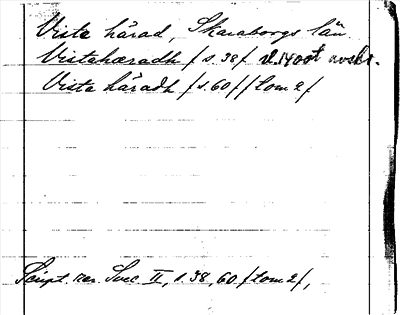 Vista härad, Skaraborgs län.
Wistahæradh /s. 38/ sl. 1400t avskr.
Vista häradh /s. 60/ /tom 2/
Script. rer. Svec. II, s. 38, 60 /tom 2/,